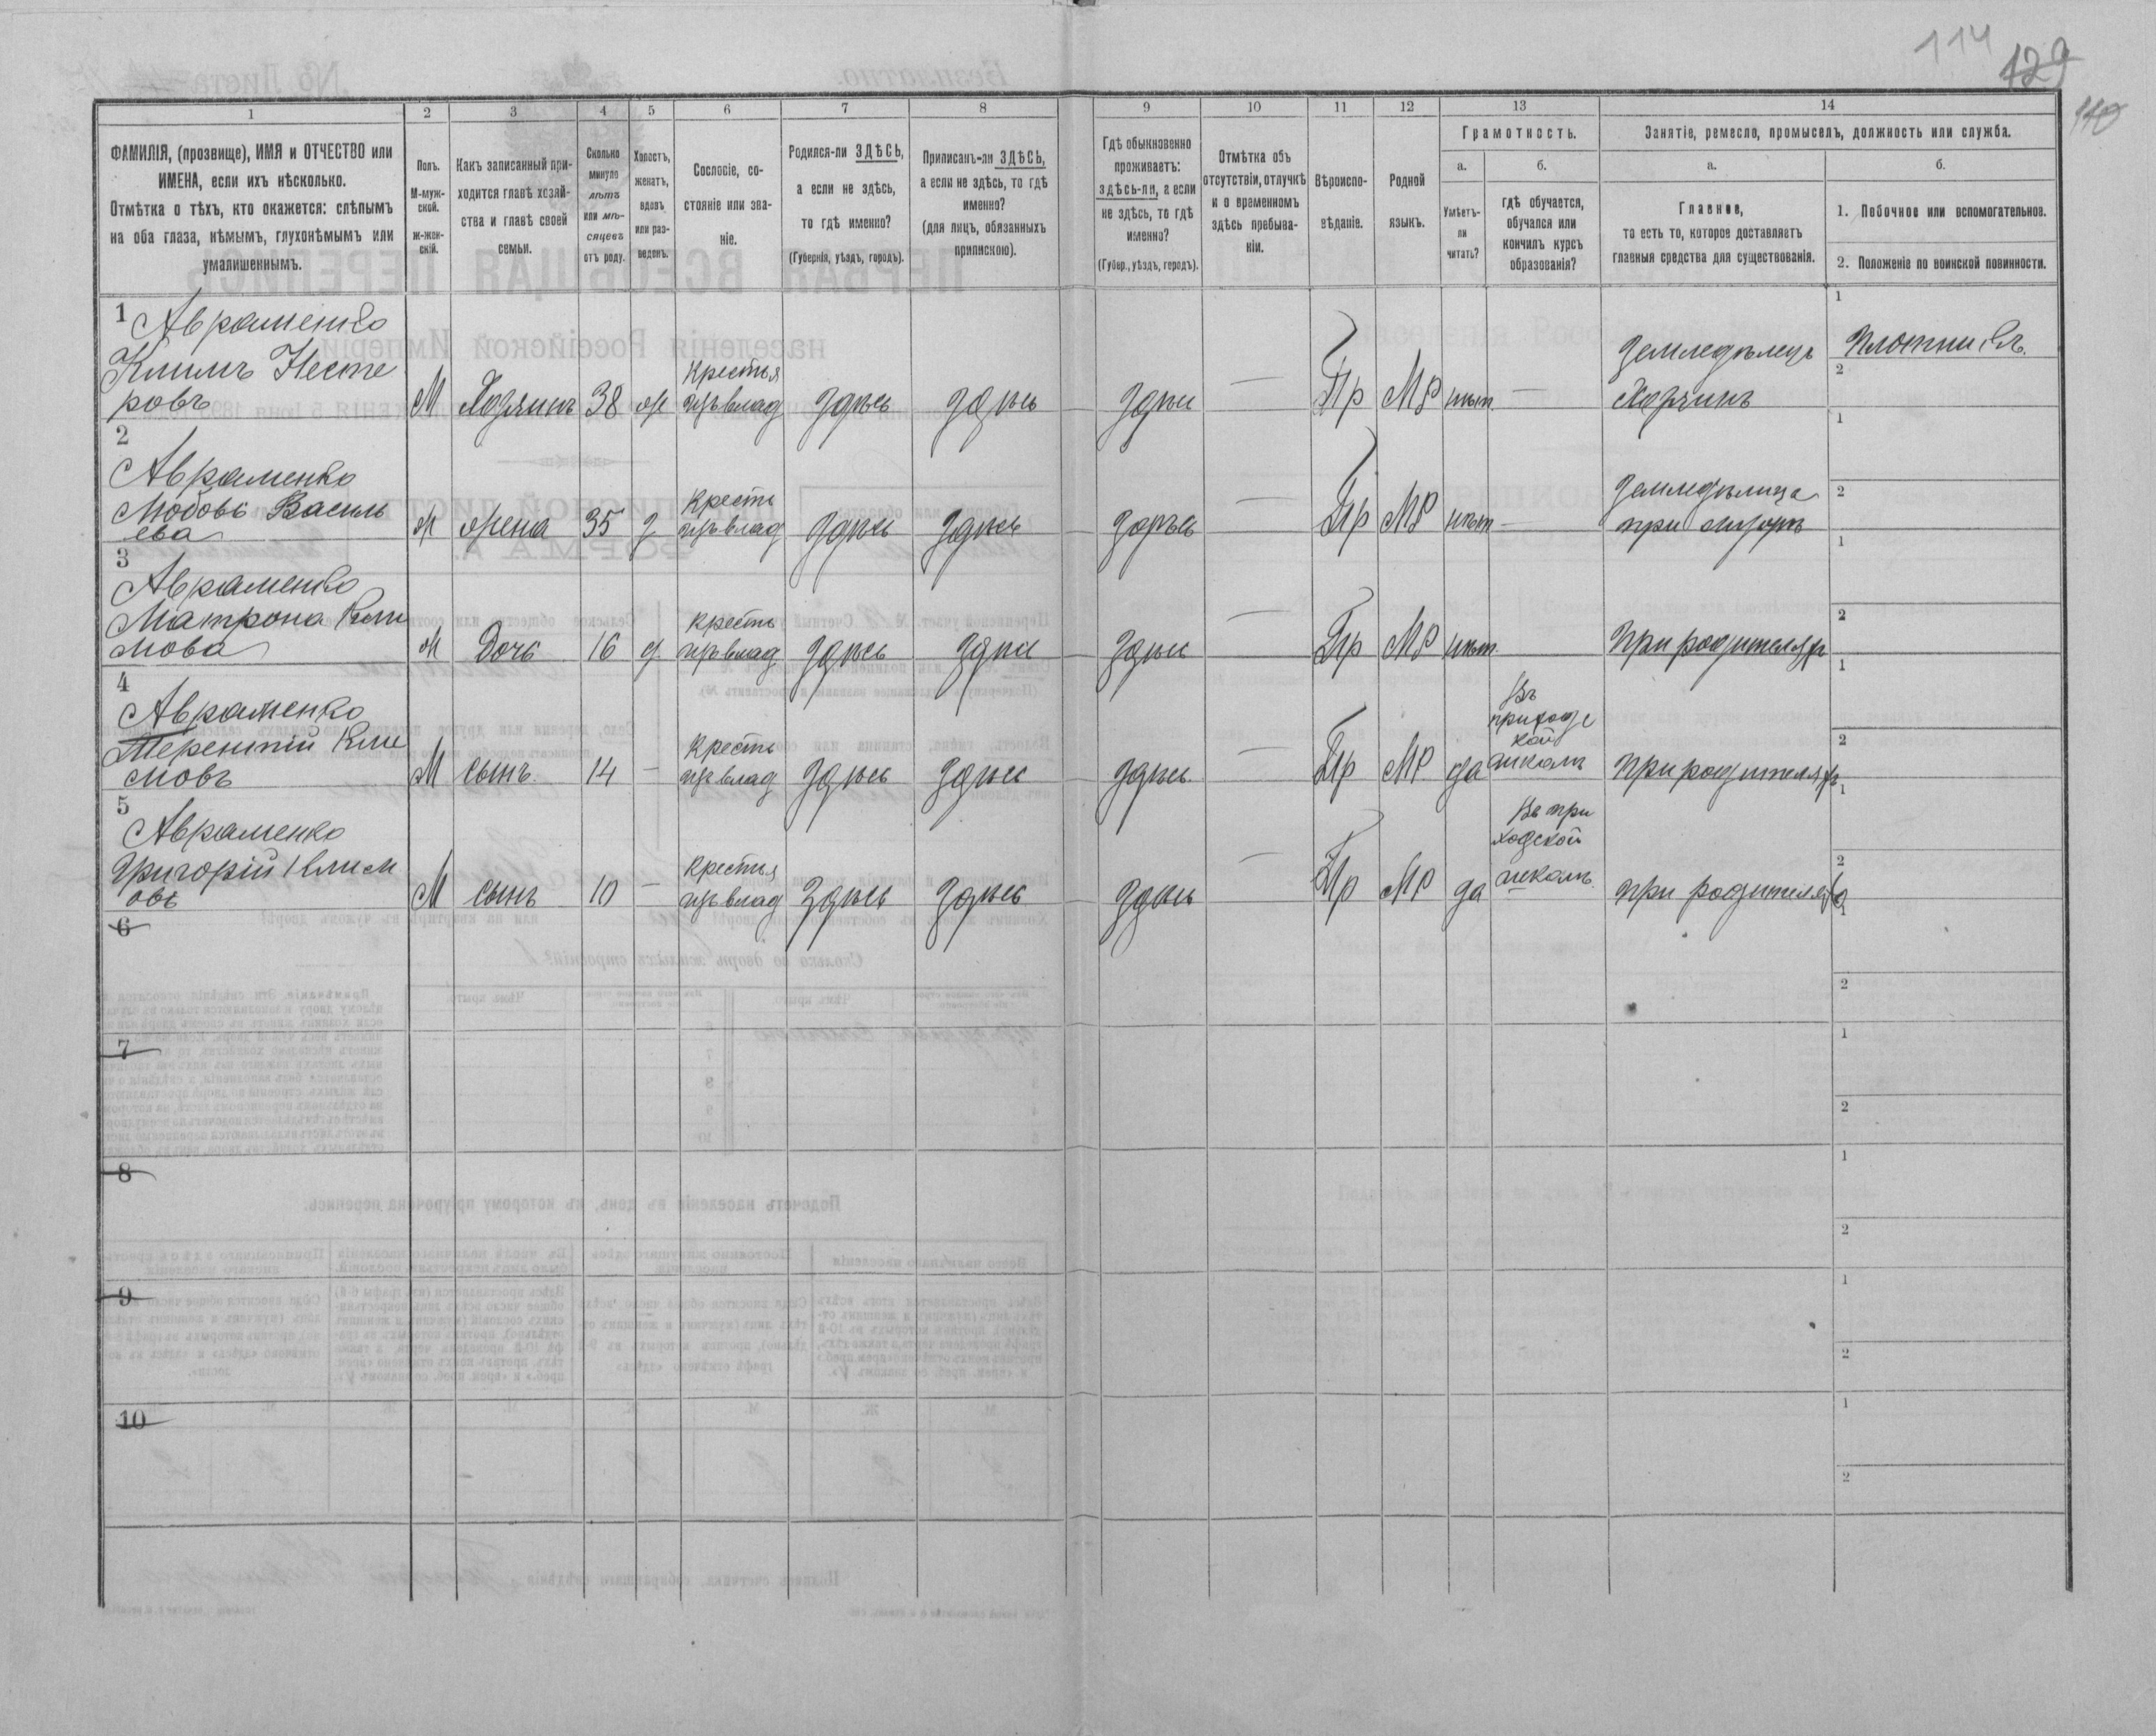 114
129
110
1
2
3
4
5
6
7
8
9
10
11
12
13
14
ФАМИЛІЯ, (прозвище), ИМЯ и ОТЧЕСТВО или
ИМЕНА, если ихъ нѣсколько.
Отмѣтка о тѣхъ, кто окажется: слѣпымъ
на оба глаза, нѣмымъ, глухонѣмымъ или
умалишеннымъ.
Полъ.
М-муж-
ской.
ж-жен-
скій.
Какъ записанный при-
ходится главѣ хозяй-
ства и главѣ своей
семьи.
Сколько
минуло
лѣтъ
или мѣ-
сяцевъ
отъ роду.
Холостъ,
женатъ,
вдовъ
или раз-
веденъ.
Сословіе, со-
стояніе или зва-
ніе.
Родился-ли ЗДѢСЬ,
а если не здѣсь,
то гдѣ именно?
(Губернія, уѣздъ, городъ).
Приписанъ-ли ЗДѢСЬ,
а если не здѣсь, то гдѣ
именно?
(для лицъ, обязанныхъ
припискою).
Гдѣ обыкновенно
проживаетъ:
здѣсь-ли, а если
не здѣсь, то гдѣ
именно?
(Губер., уѣздъ, городъ).
Отмѣтка объ
отсутствіи, отлучкѣ
и о временномъ
здѣсь пребыва-
ніи.
Вѣроиспо-
вѣданіе.
Родной
языкъ.
Грамотность.
а.
Умѣетъ-
ли
читать?
б.
гдѣ обучается,
обучался или
кончилъ курсъ
образованія?
Занятіе, ремесло, промыселъ, должность или служба.
а.
Главное,
то есть то, которое доставляетъ
главныя средства для существованія.
б.
1. Побочное или вспомогательное.
2. Положеніе по воинской повинности.
1 Авраменко
Климъ Несте
ровъ
М
Хозяинъ
38
ж
Крестья
изъ влад
здѣсь
здѣсь
здѣсь
—
Пр
МР
нѣт
—
Земледѣлецъ
Хозяинъ
1
Плотникъ.
2
2
Авраменко
Любовь Василь
ева
ж
жена
35
з
Кресть
изъ влад
здѣсь
здѣсь
здѣсь
—
Пр
МР
нѣт
—
Земледѣлица
при мужѣ
1
2
3
Авраменко
Матрона Кли
мова
ж
Дочь
16
д
Кресть
изъ влад
здѣсь
здѣсь
здѣсь
—
Пр
МР
нѣт
При родителяхъ
1
2
4
Авраменко
Терентій Кли
мовъ
М
сынъ
14
—
Кресть
изъ влад
здѣсь
здѣсь
здѣсь
—
Пр
МР
да
Въ
приходс
кой
школѣ
при родителяхъ
1
2
5
Авраменко
Григорій Клим
овъ
М
сынъ
10
—
Крестья
изъ влад
здѣсь
здѣсь
здѣсь
—
Пр
МР
да
Въ при
ходской
школѣ
при родителяхъ
1
2
6
1
2
7
1
2
8
1
2
9
1
2
10
1
2